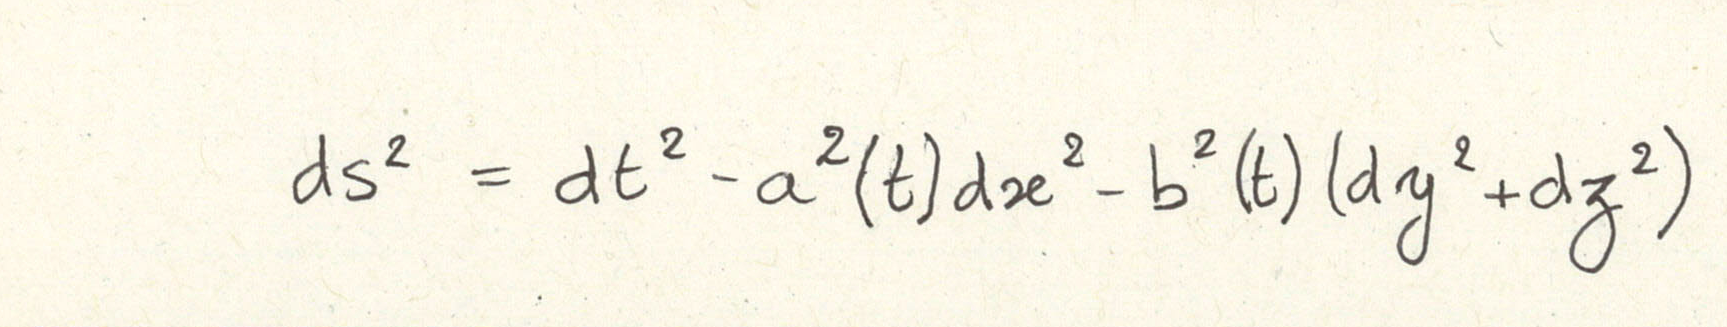 ds² = dt² - a²(t)dx² - b²(t)(dy²+dz²)